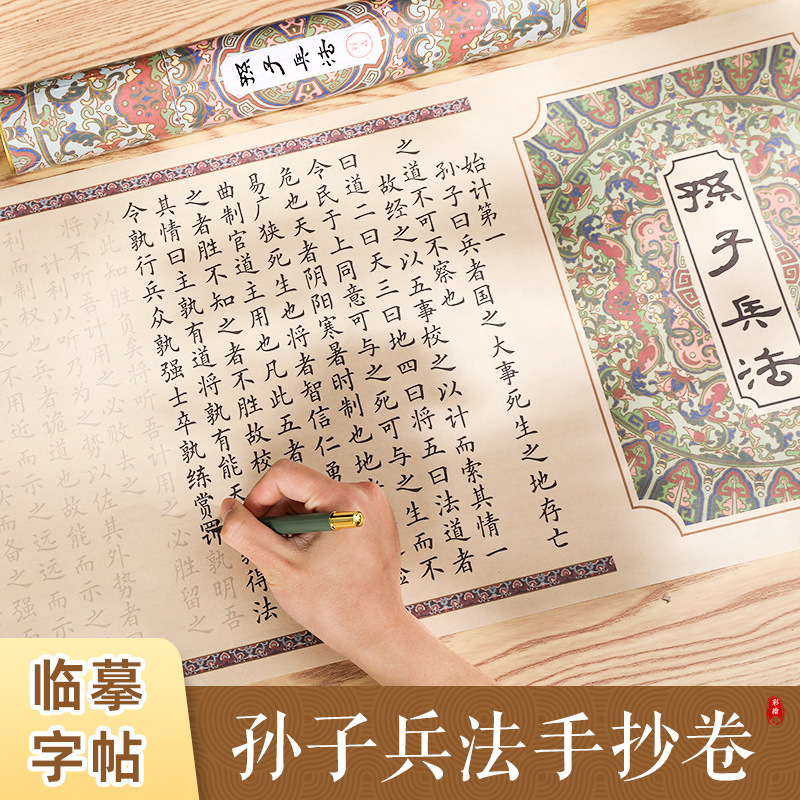 孫子兵法
孫子兵法
始计第一
孙子曰兵者国之大事死生之地存亡
之道不可不察也
故经之以五事校之以计而索其情一
曰道二曰天三曰地四曰将五曰法道者
令民于上同意可与之死可与之生而不
危也天者阴阳寒暑时制也地
险
易广狭死生也将者智信仁勇
曲制官道主用也凡此五者
之者胜不知之者不胜故校
其情曰主孰有道将孰有能天
得法
令孰行兵众孰强士卒孰练赏罚孰明吾
以此知胜负矣将听吾计用之必胜留之
将不听吾计用之必败去之
计利以听乃为之势以佐其外势者
利而制权也兵者诡道也故能而示之
用近而示之远远而示之
临摹
字帖
孙子兵法手抄卷
彩绘